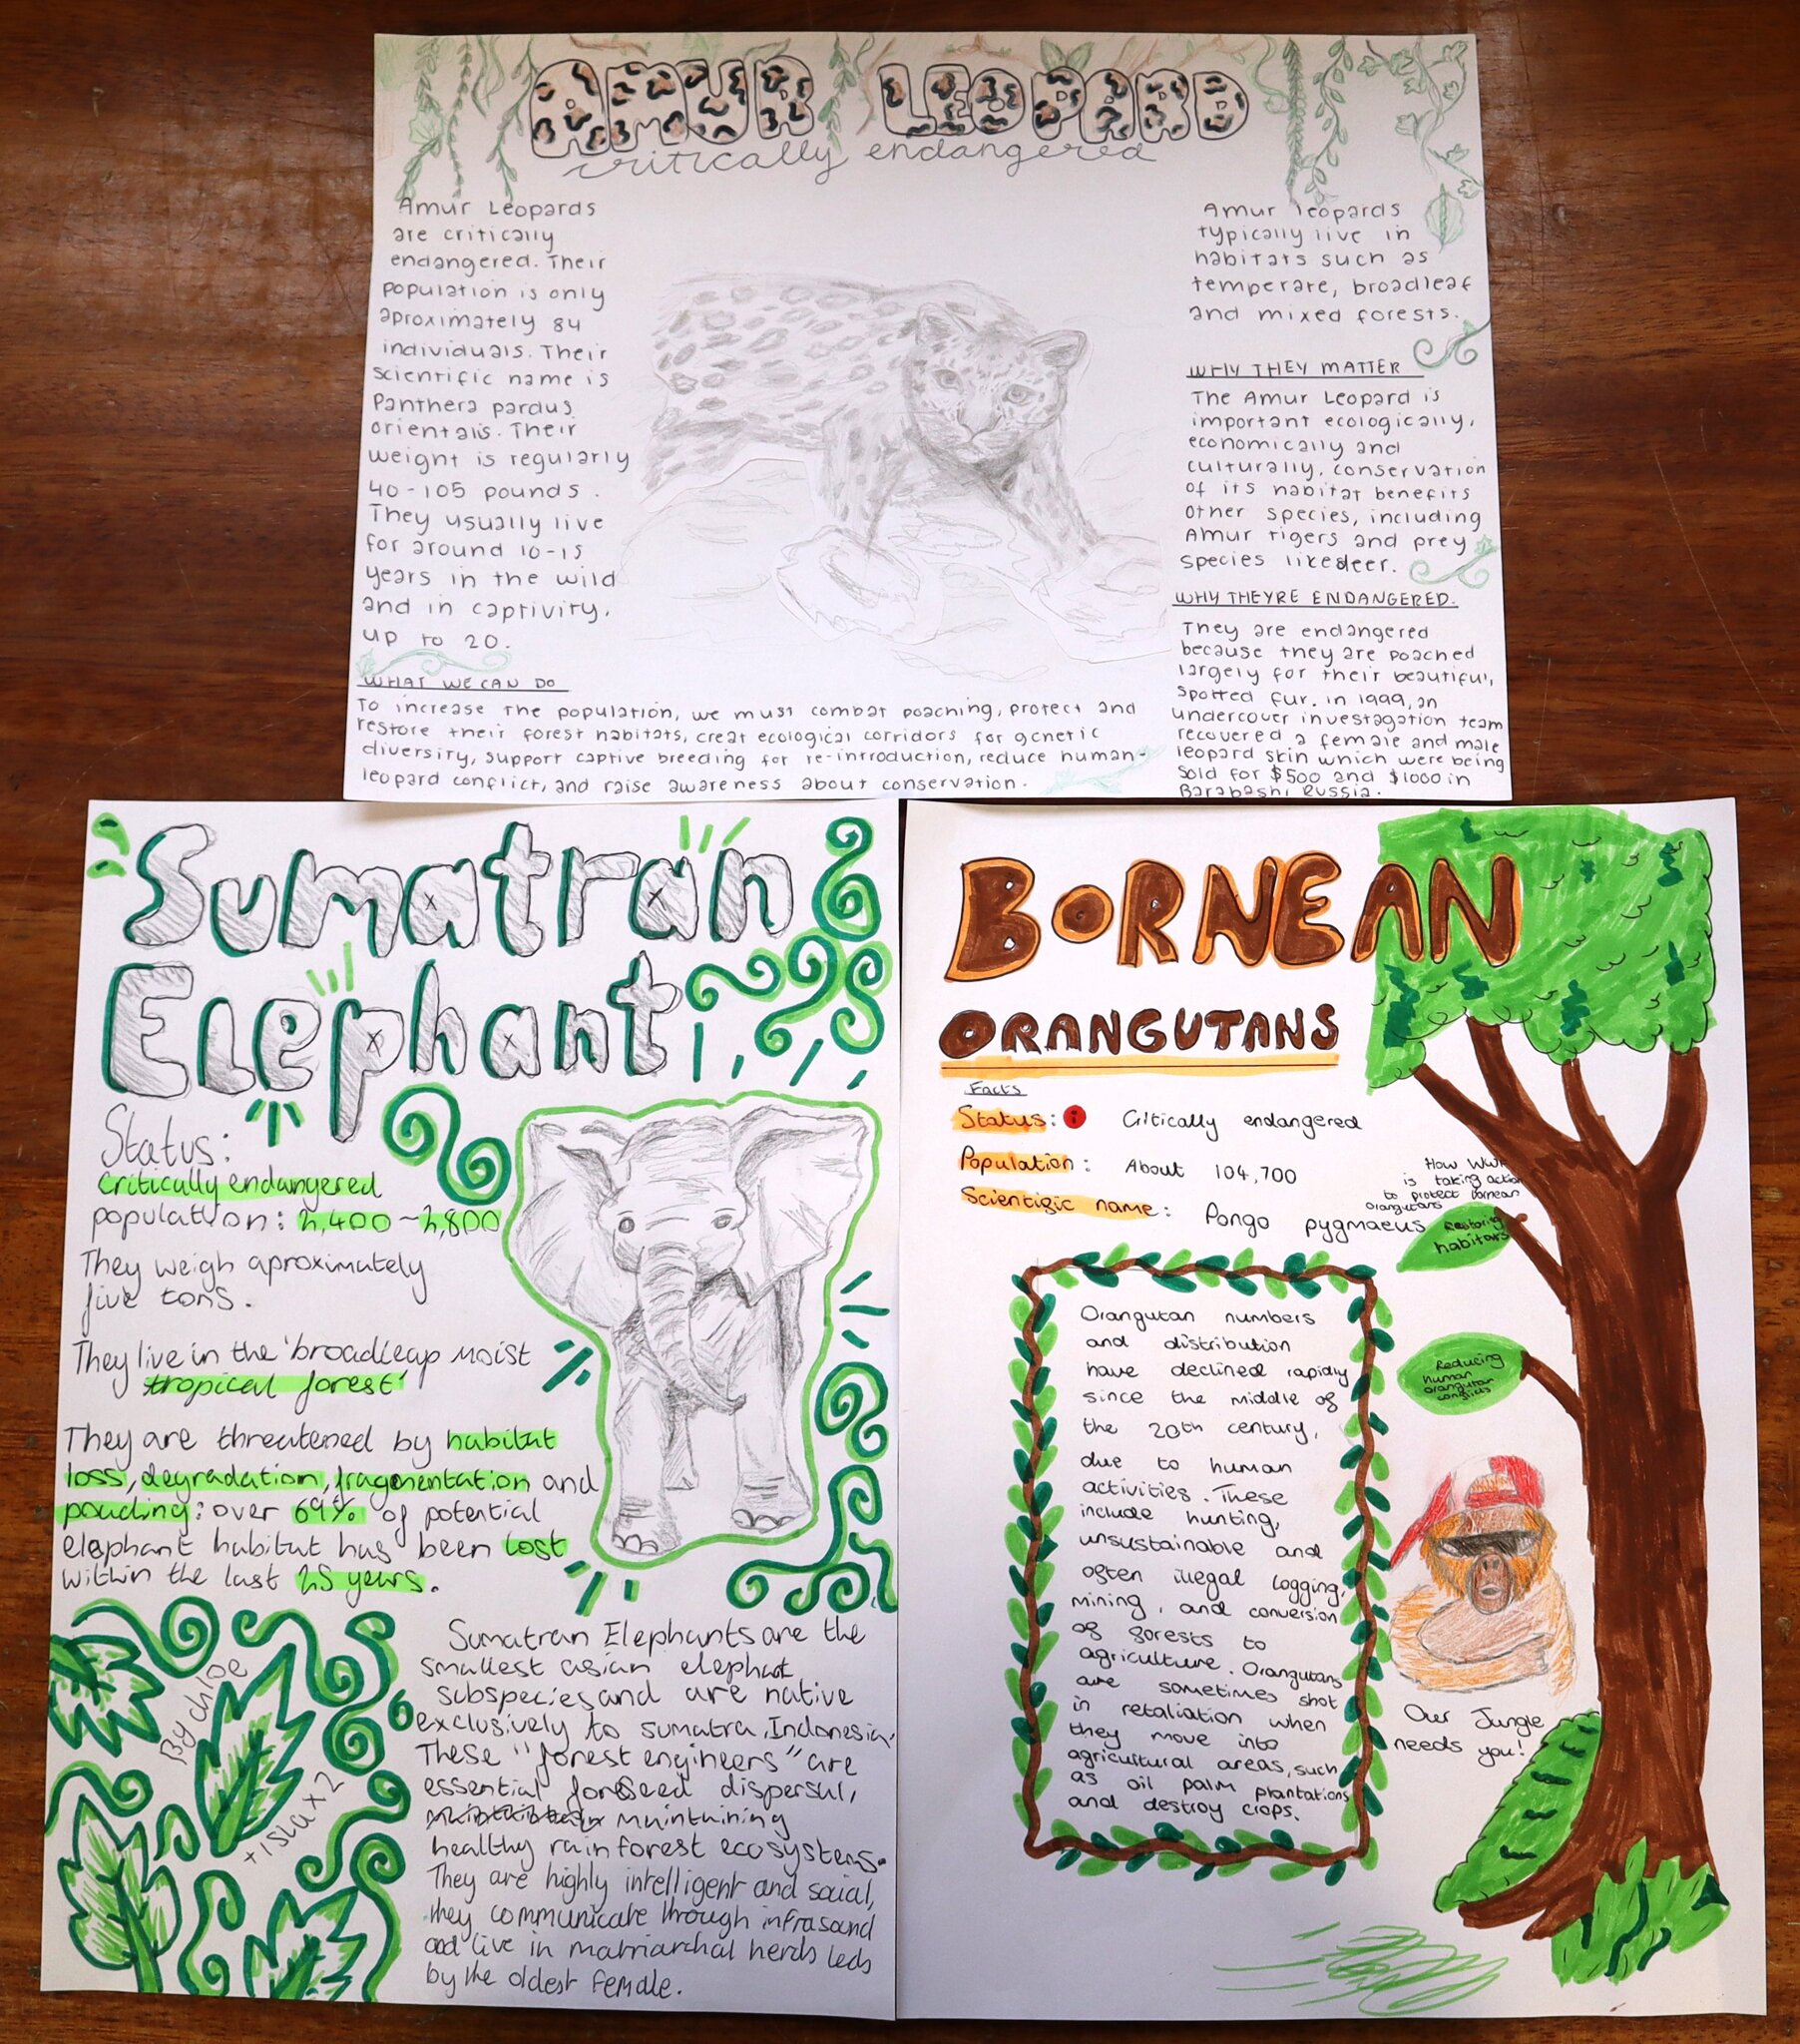 AMUR LEOPARD
critically endangered
Amur Leopards
are critically
endangered. Their
population is only
aproximately 84
individuals. Their
scientific name is
Panthera pardus
orientais. Their
weight is regularly
40-105 pounds.
They usually live
for around 10-15
years in the wild
and in captivity,
up to 20.
WHAT WE CAN DO
To increase the population, we must combat poaching, protect and
restore their forest habitats, creat ecological corridors for genetic
diversity, support captive breeding for re-introduction, reduce human-
leopard conflict, and raise awareness about conservation.
Amur leopards
typically live in
habitats such as
temperate, broadleaf
and mixed forests.
WHY THEY MATTER
The Amur Leopard is
important ecologically,
economically and
culturally, conservation
of its habitat benefits
other species, including
Amur tigers and prey
species like deer.
WHY THEYRE ENDANGERED.
They are endangered
because they are poached
largely for their beautiful,
spotted fur. in 1999, an
undercover investagation team
recovered a female and male
leopard skin which were being
sold for $500 and $1000 in
Barabashi Russia.
Sumatran
Elephant
Status:
critically endangered
population: 2,400-2,800
They weigh aproximately
five tons.
They live in the 'broadleap moist
tropical forest'
They are threatened by habitat
loss, degradation, fragmentation and
poaching: over 69% of potential
elephant habitat has been lost
within the last 25 years.
By chloe
+ isla x2
Sumatran Elephants are the
smallest asian elephant
subspecies and are native
exclusively to sumatra, Indonesia.
These "forest engineers" are
essential for seed dispersal,
maintaining
healthy rainforest ecosystems.
They are highly intelligent and social,
they communicate through infrasound
and live in matriarchal herds leds
by the oldest female.
BORNEAN
ORANGUTANS
Facts
Status: Critically endangered
Population: About 104,700
Scientific name: Pongo pygmaeus
How WWF
is taking action
to protect bornean
orangutans
Restoring
habitats
Reducing
human
orangutan
conflicts
Orangutan numbers
and distribution
have declined rapidly
since the middle of
the 20th century,
due to human
activities. These
include hunting,
unsustainable and
often illegal logging,
mining, and conversion
of forests to
agriculture. Orangutans
are sometimes shot
in retaliation when
they move into
agricultural areas, such
as oil palm plantations
and destroy crops.
Our Jungle
needs you!